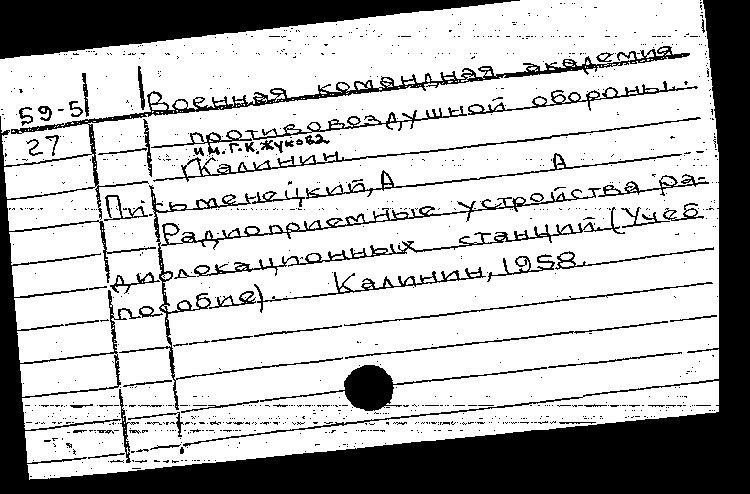 59-5 Военная командная академия
27 противовоздушной обороны.
им. Г.К. Жукова
г Калинин.
Письменецкий, А А
Радиоприемные устройства ра-
диолокационных станций. (Учеб
пособие). Калинин, 1958.